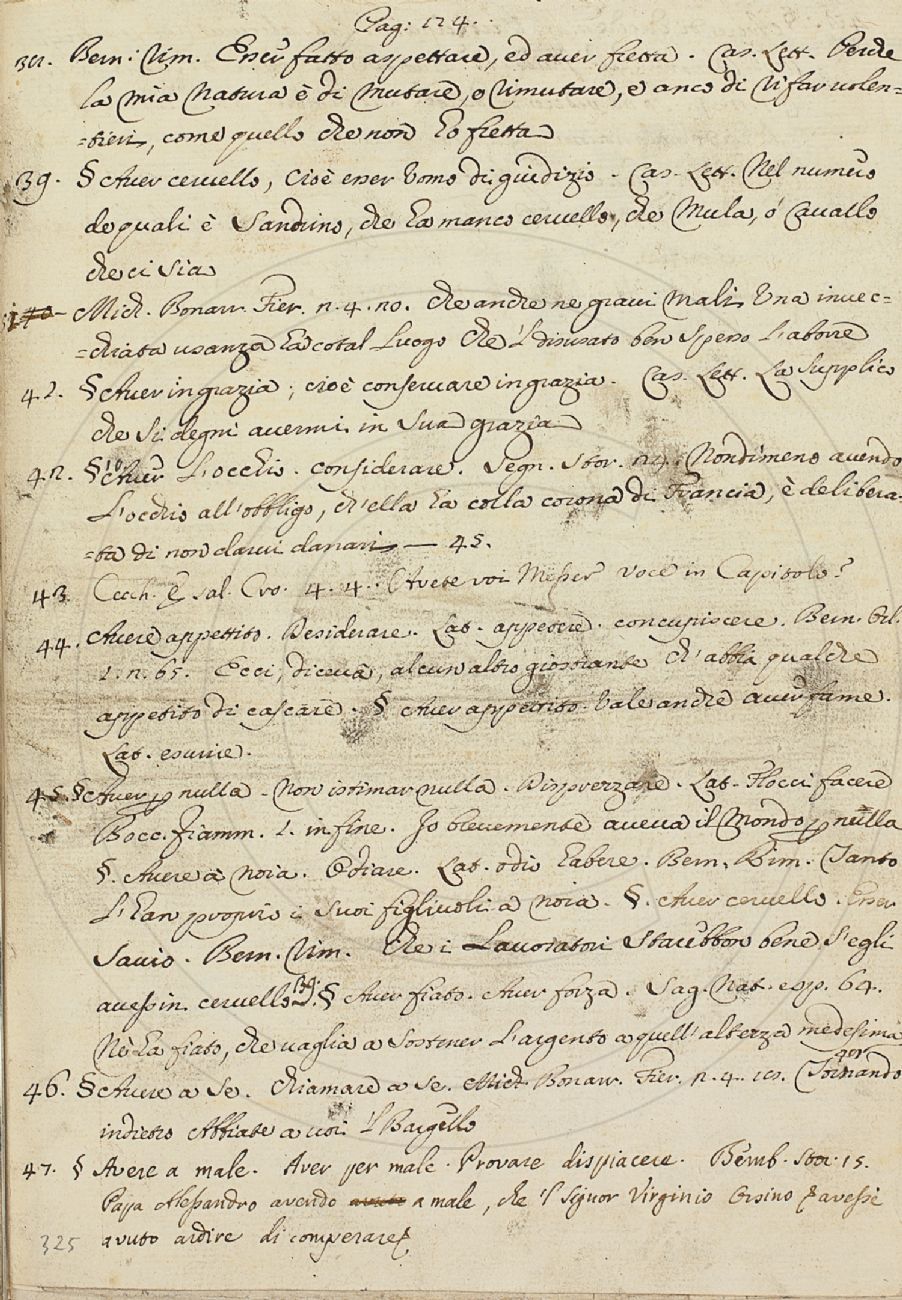 Pag: 124.
Bern: Rim. Esser fatto aspettare, ed aver fretta. Cas. Lett. Perche
la mia natura è di mutare, o rimutare, e anco di rifar volen=
=tieri, come quello che non ho fretta
39. § Aver cervello, cioè esser uomo di giudizio. Cas. Lett. Nel numero
de quali è Sandrino, che ha manco cervello, che Mula, ò Cavallo
che ci sia
Mich. Bonarr. Fier. che anche ne gravi mali una invec=
=chiata usanza ha cotal luogo che 'l disusato ben spesso l'abborre
§ Aver in grazia; cioè conservare in grazia. Cas. Lett. La supplico
che si degni avermi in sua grazia
42. § Aver l'occhio. considerare. Segn. Stor. Nondimeno avendo
l'occhio all'obbligo, ch'ella ha colla corona di Francia, è delibera=
=ta di non darvi danari — 45.
43. Cecch. Sal. 4. 4. Avete voi Messer voce in Capitolo?
44. Avere appetito. Desiderare. Lat. appetere. concupiscere. Bern. Orl.
Ecci, diceva, alcun altro giostrante ch'abbia qualche
appetito di cascare. § Aver appetito. Vale anche aver fame.
Lat. esurire.
45. § Aver p nulla. Non istimar nulla. Disprezzare. Lat. Flocci facere
Bocc. Fiamm. 1. in fine. Io brevemente aveva il Mondo p nulla
§. Avere à noia. Odiare. Lat. odio habere. Bern. Rim. Tanto
l'han proprio i suoi figliuoli a noia. §. Aver cervello. Esser
Savio. Bern. Rim. Che i Lavoratori starebbon bene s'egli
avessin cervello 39. § Aver fiato. Aver forza. Sag. Nat. esp. 64.
Nè ha fiato, che vaglia a sostener l'argento a quell'altezza medesima
46. § Avere a se. Chiamare a se. Mich. Bonarr. Fier. Tornando
indietro Abbiate a voi 'l Bargello
47. § Avere a male. Aver per male. Provare dispiacere. Bemb. Stor. 15.
Papa Alessandro avendo a male, che 'l Signor Virginio Orsino avesse
avuto ardire di comperare
325